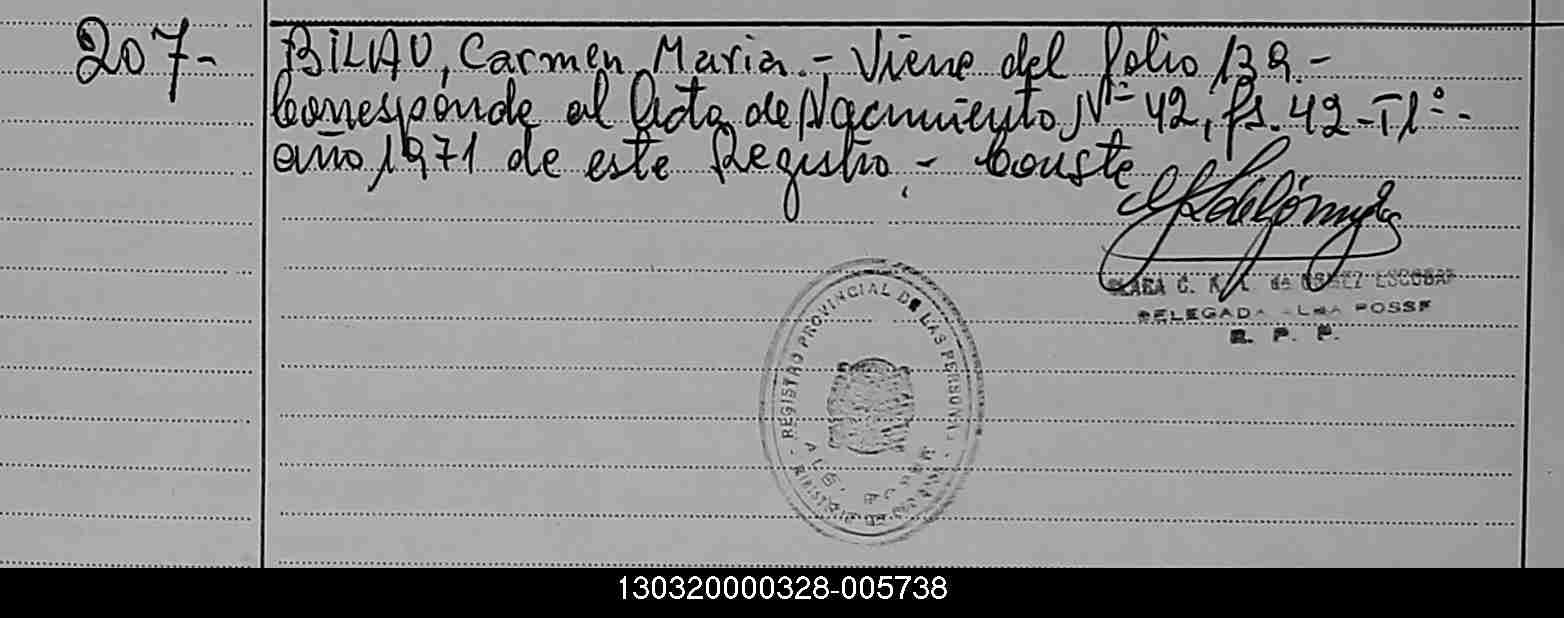 207-
BILAU, Carmen Maria.- Viene del folio 139.-
Corresponde al Acta de Nacimiento Nº 42, fs. 42-T1º-
año 1971 de este Registro.- Conste
C. de GOMEZ ESCOBAR
DELEGADA POSSE
R. P. P.
REGISTRO PROVINCIAL DE LAS PERSONAS
130320000328-005738